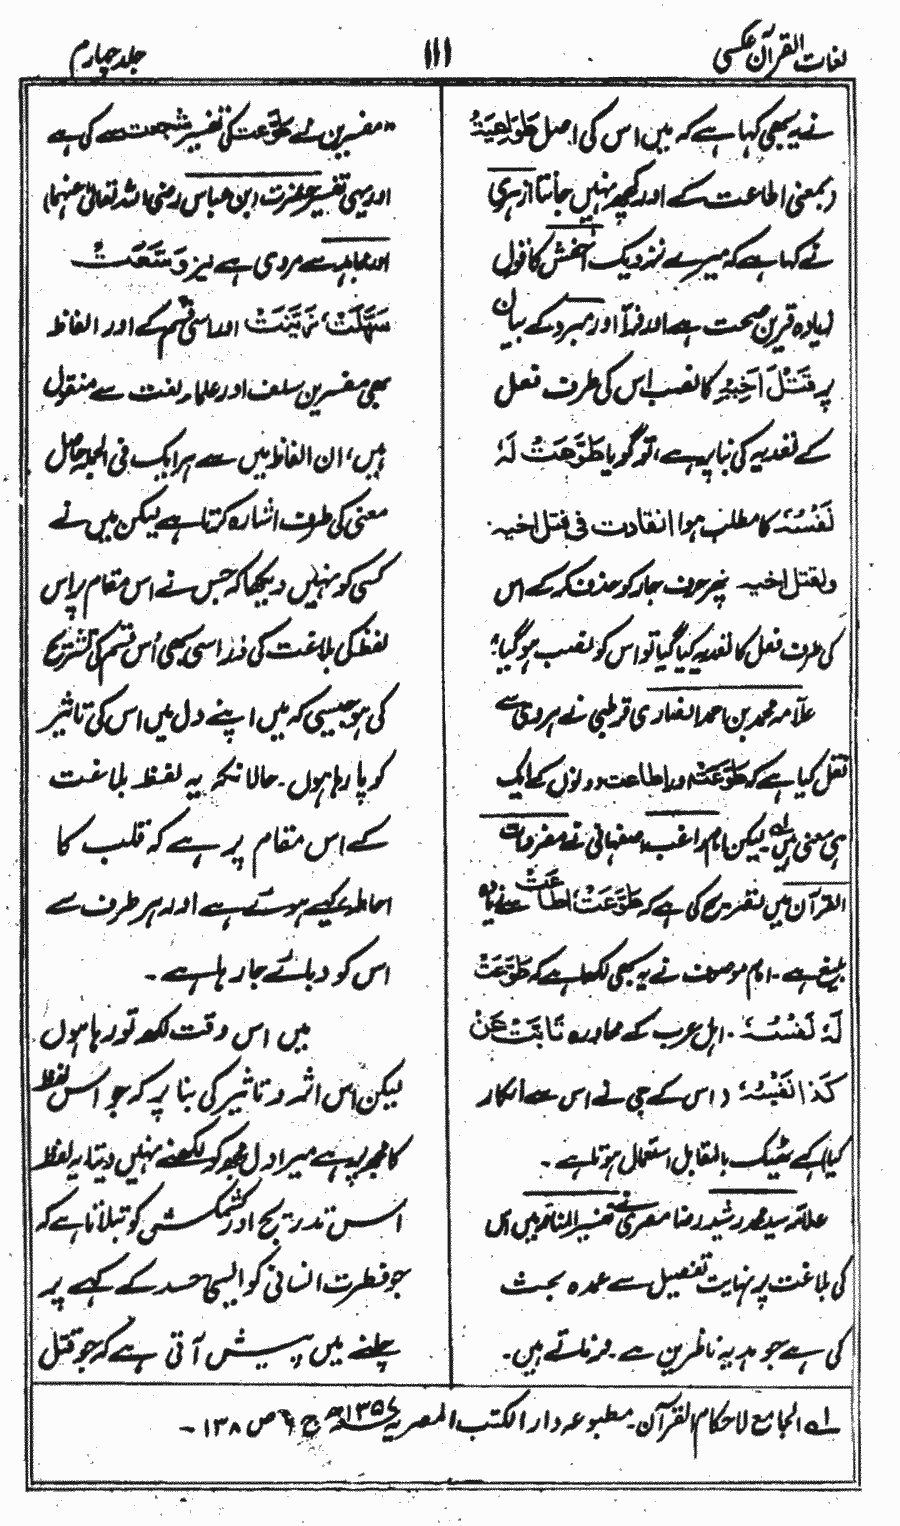 لغات القرآن عکسی
١١١
جلد چہارم
نے یہ بھی کہا ہے کہ میں اس کی اصل طَوَاعِیَۃٌ
(بمعنی اطاعت کے اور کچھ نہیں جانتا ازہری
نے کہا ہے کہ میرے نزدیک اخفش کا قول
زیادہ قرین صحت ہے اور فراّ اور مبرد کے بیان
پر قَتْلَ اَخِیْہِ کا نصب اس کی طرف فعل
کے تعدیہ کی بنا پر ہے، تو گویا طَوَّعَتْ لَہٗ
نَفْسُہٗ کا مطلب ہوا انقادت فی قتل اخیہ
ولقتل اخیہ پھر حرف جار کو حذف کر کے اس
کی طرف فعل کا تعدیہ کیا گیا تو اس کو نصب ہو گیا؛
علامہ محمد بن احمد انصاری قرطبی نے ہروی سے
نقل کیا ہے کہ طَوَّعَتْ اور اطاعت دونوں کے ایک
ہی معنی ہیں لہ لیکن امام راغب اصفہانی نے مفردات
القرآن میں تصریح کی ہے کہ طَوَّعَتْ، اطاعَتْ سے زیادہ
بلیغ ہے۔ امام موصوف نے یہ بھی لکھا ہے کہ طَوَّعَتْ
لَہٗ نَفْسُہٗ۔ اہل عرب کے محاورہ تَابَتْ عَنْ
کَذَا نَفْسُہٗ (اس کے جی نے اس سے انکار
کیا) کے ٹھیک بالمقابل استعمال ہوتا ہے۔
علامہ سید محمد رشید رضا مصری نے تفسیر المنار میں اس
کی بلاغت پر نہایت تفصیل سے عمدہ بحث
کی ہے جو ہدیہ ناظرین ہے۔ فرماتے ہیں۔
"مفسرین نے طَوَّعَتْ کی تفسیر شجعت سے کی ہے
اور یہی تفسیر حضرت ابن عباس رضی اللہ تعالیٰ عنہما
اور مجاہد سے مروی ہے نیز وَسَّعَتْ
سَہَّلَتْ، زَیَّنَتْ اور اسی قسم کے اور الفاظ
بھی مفسرین سلف اور علماء لغت سے منقول
ہیں، ان الفاظ میں سے ہر ایک فی الجملہ حاصل
معنی کی طرف اشارہ کرتا ہے لیکن میں نے
کسی کو نہیں دیکھا کہ جس نے اس مقام پر اس
لفظ کی بلاغت کی ذرا سی بھی اُس قسم کی تشریح
کی ہو جیسی کہ میں اپنے دل میں اس کی تاثیر
کو پا رہا ہوں۔ حالانکہ یہ لفظ بلاغت
کے اس مقام پر ہے کہ قلب کا
احاطہ کیے ہوئے ہے اور ہر طرف سے
اس کو دبائے جا رہا ہے۔
میں اس وقت لکھ تو رہا ہوں
لیکن اس اثر و تاثیر کی بنا پر کہ جو اس لفظ
کا مجھ پر ہے میرا دل مجھ کو لکھنے نہیں دیتا یہ لفظ
اس تدریج اور کشمکش کو بتلاتا ہے کہ
جو فطرت انسانی کو ایسی حسد کے کہے پر
چلنے میں پیش آتی ہے کہ جو قتل
لہ الجامع لاحکام القرآن۔ مطبوعہ دار الکتب المصریہ ١٣٥٧ھ ج ٦ ص ١٣٨ ۔